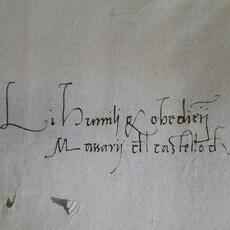 Li humili & obedieñ
Massarij d'l castello d